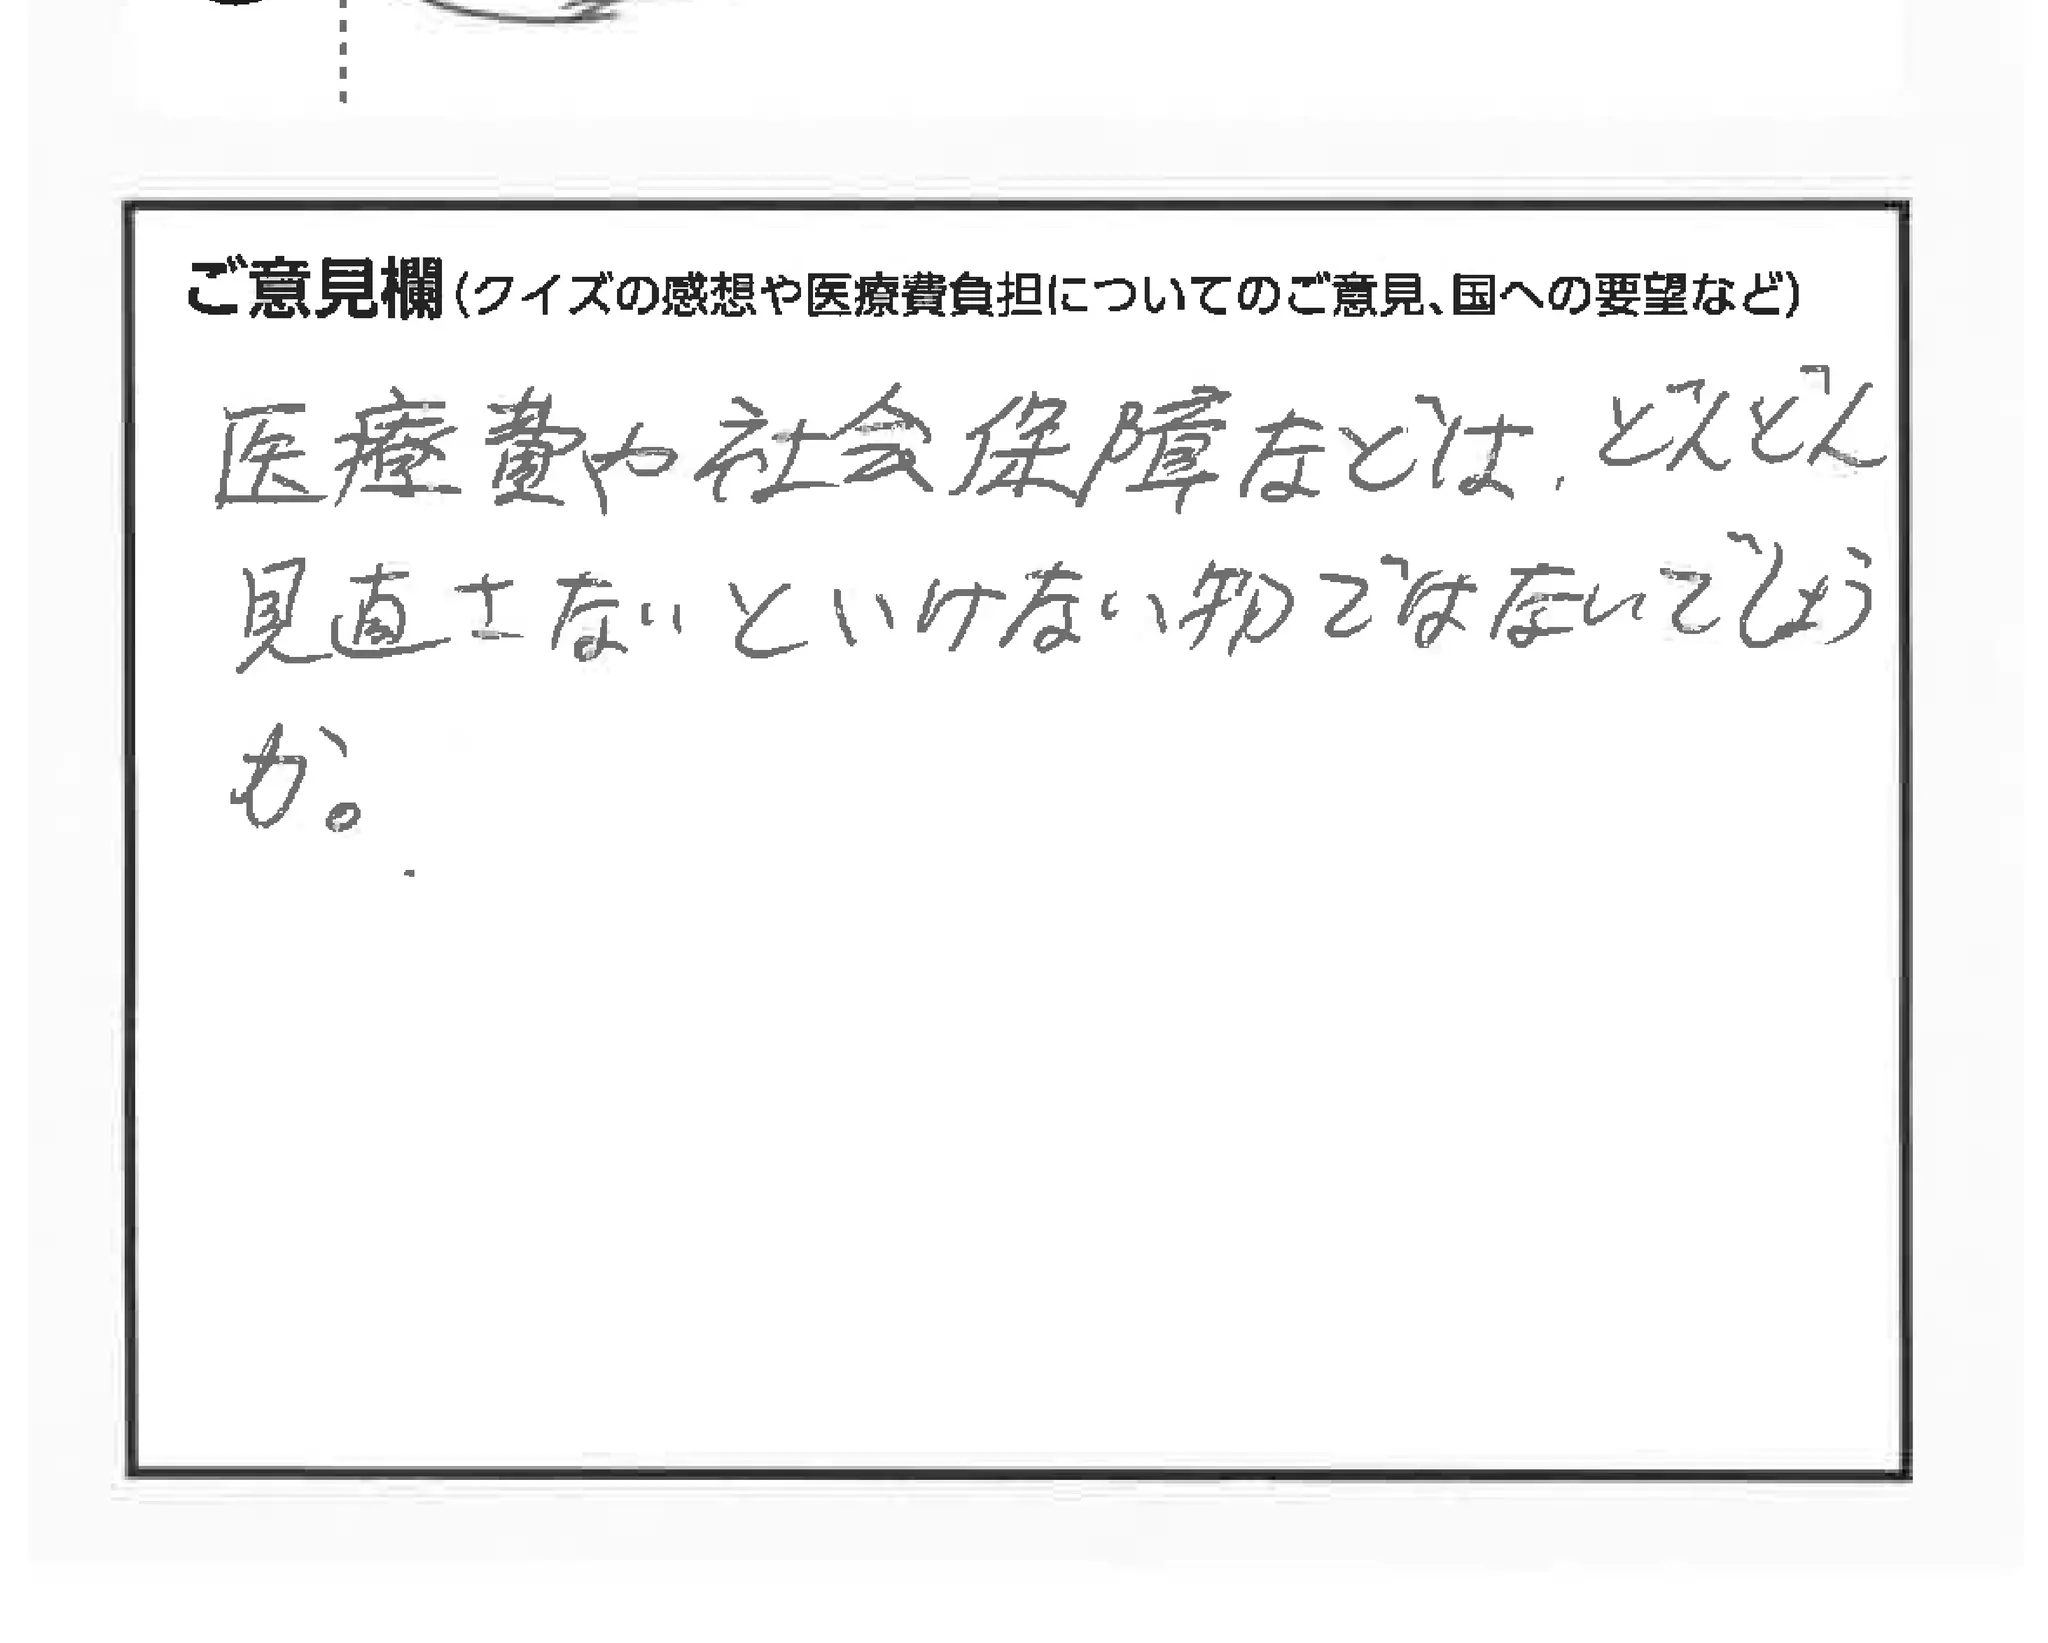 ご意見欄(クイズの感想や医療費負担についてのご意見、国への要望など)
医療費や社会保障などは、どんどん
見直さないといけない物ではないでしょう
か。